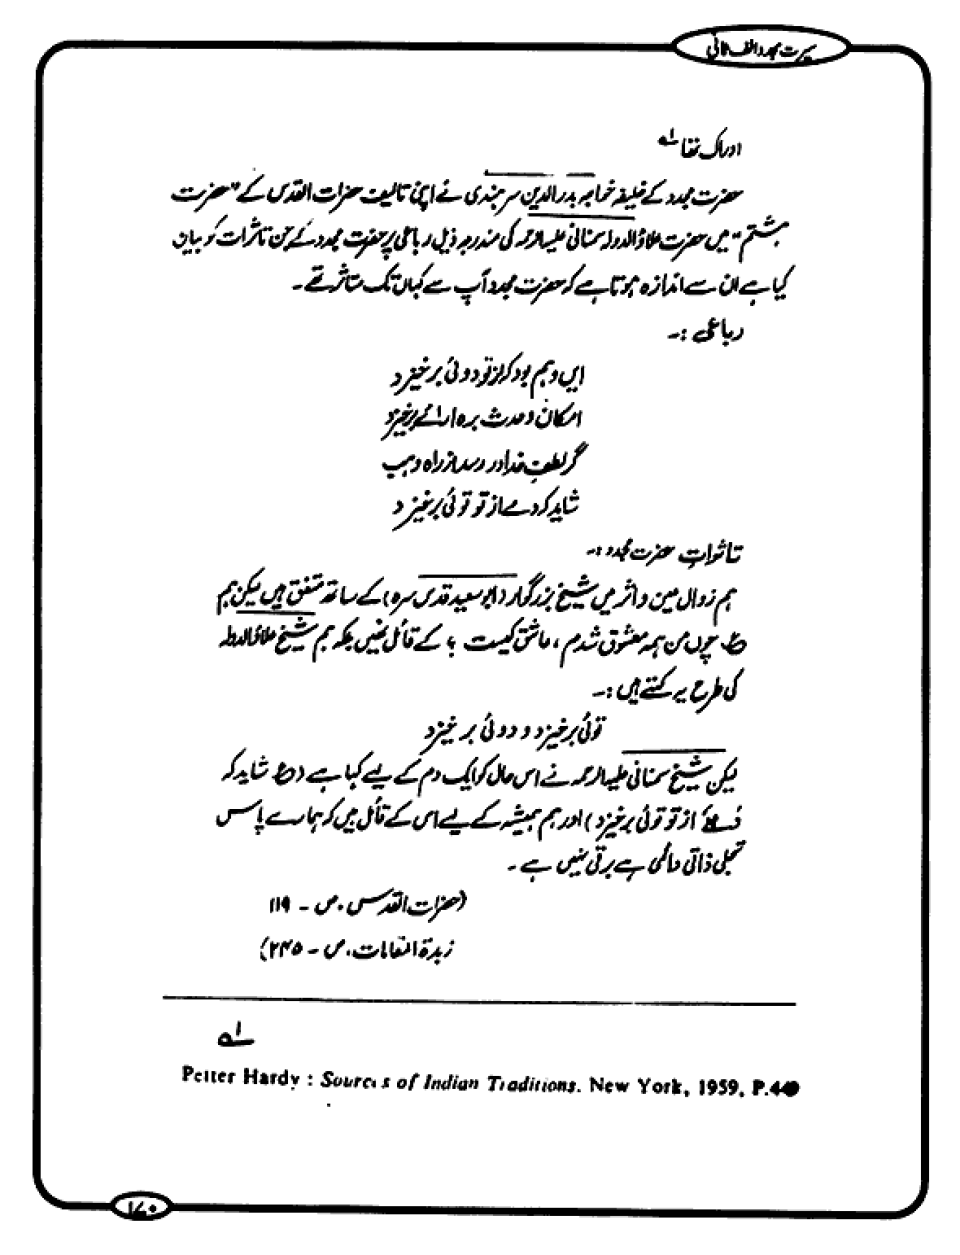 سیرت مجدد الف ثانی
ادراک تھا لہ
حضرت مجدد کے خلیفہ خواجہ بدرالدین سرہندی نے اپنی تالیف حضرات القدس کے "حضرت
ہشتم" میں حضرت علاؤالدولہ سمنانی علیہ الرحمہ کی مندرجہ ذیل رباعی پر حضرت مجدد کے جن تاثرات کو بیان
کیا ہے ان سے اندازہ ہوتا ہے کہ حضرت مجدد آپ سے کہاں تک متاثر تھے۔
رباعی :۔
ایں وہم بود کز تو دوئی برخیزد
امکان و حدث برہ برخیزد
گر لطف خدا در رسد از راہ وہب
شاید کہ دمے از تو توئی برخیزد
تاثرات حضرت مجدد :۔
ہم زوال عین و اثر میں شیخ بزرگوار (ابوسعید قدس سرہ) کے ساتھ متفق ہیں لیکن ہم
ع چوں من ہمہ معشوق شدم، عاشق کیست ؟ کے قائل نہیں بلکہ ہم شیخ علاؤالدولہ
کی طرح یہ کہتے ہیں :۔
توئی برخیزد و دوئی برخیزد
لیکن شیخ سمنانی علیہ الرحمہ نے اس حال کو ایک دم کے لیے کہا ہے (ع شاید کہ
از تو توئی برخیزد) اور ہم ہمیشہ کے لیے اس کے قائل ہیں کہ ہمارے پاس
تجلی ذاتی دائمی ہے برقی نہیں ہے۔
(حضرات القدس، ص ۔ ۱۱۹
زبدۃ المقامات، ص ۔ ۲۴۵)
لہ
Petter Hardy : Sources of Indian Traditions. New York, 1959, P.44
۱۷۰